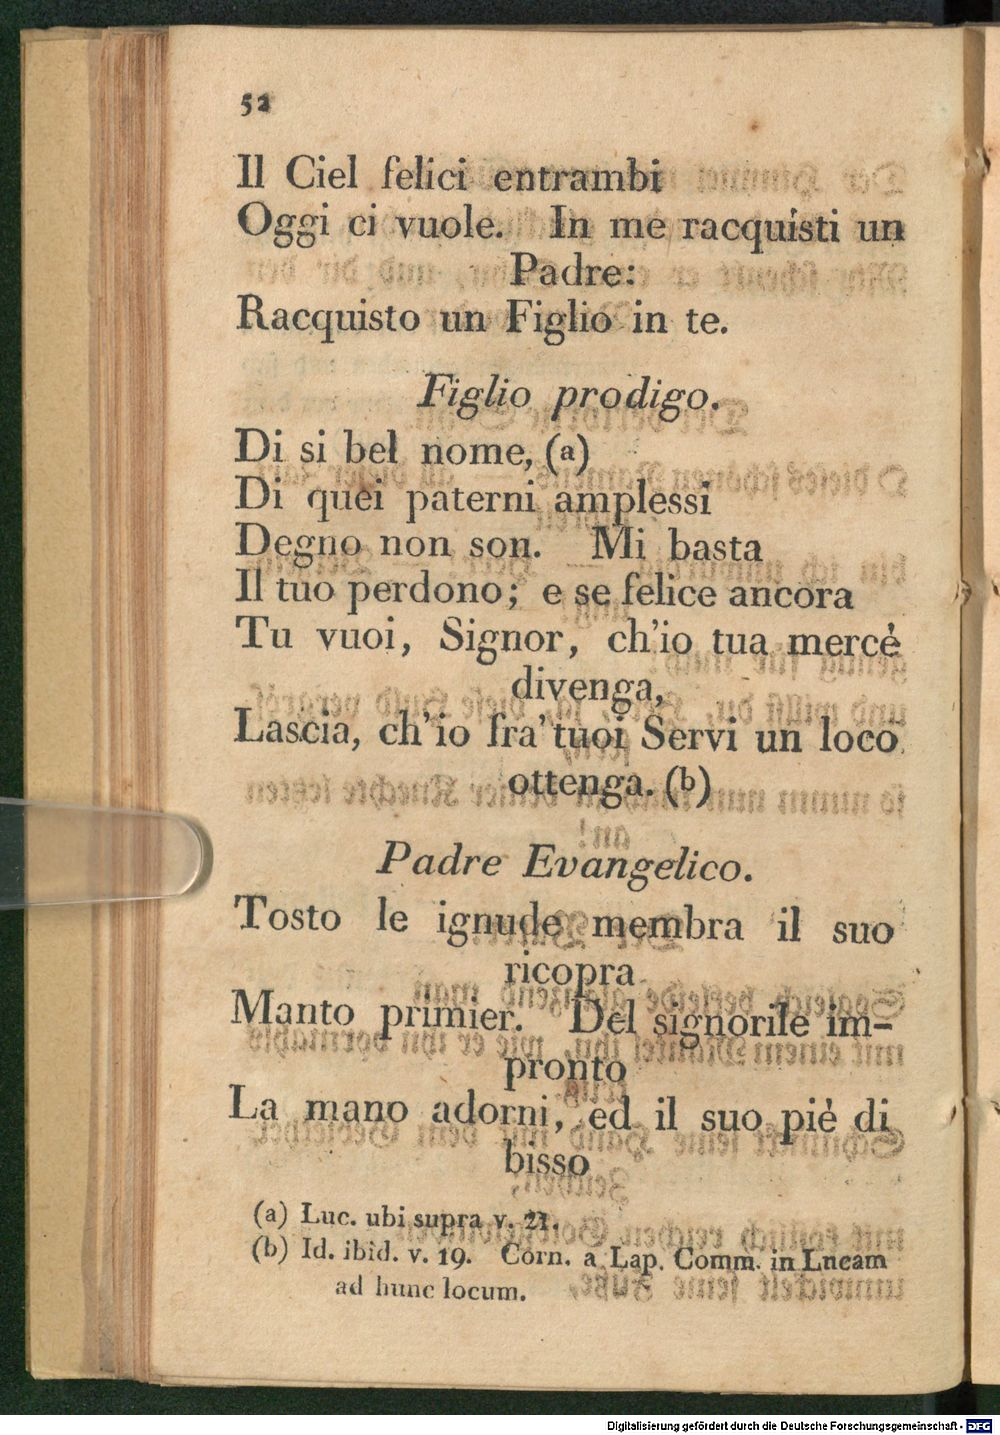 52
Il Ciel felici entrambi
Oggi ci vuole. In me racquisti un
Padre:
Racquisto un Figlio in te.
Figlio prodigo.
Di si bel nome, (a)
Di quei paterni amplessi
Degno non son. Mi basta
Il tuo perdono; e se felice ancora
Tu vuoi, Signor, ch'io tua mercè
divenga,
Lascia, ch'io fra' tuoi Servi un loco
ottenga. (b)
Padre Evangelico.
Tosto le ignude membra il suo
ricopra
Manto primier. Del signorile im-
pronto
La mano adorni, ed il suo piè di
bisso
(a) Luc. ubi supra v. 21.
(b) Id. ibid. v. 19. Corn. a Lap. Comm. in Lucam
ad hunc locum.
Digitalisierung gefördert durch die Deutsche Forschungsgemeinschaft - DFG